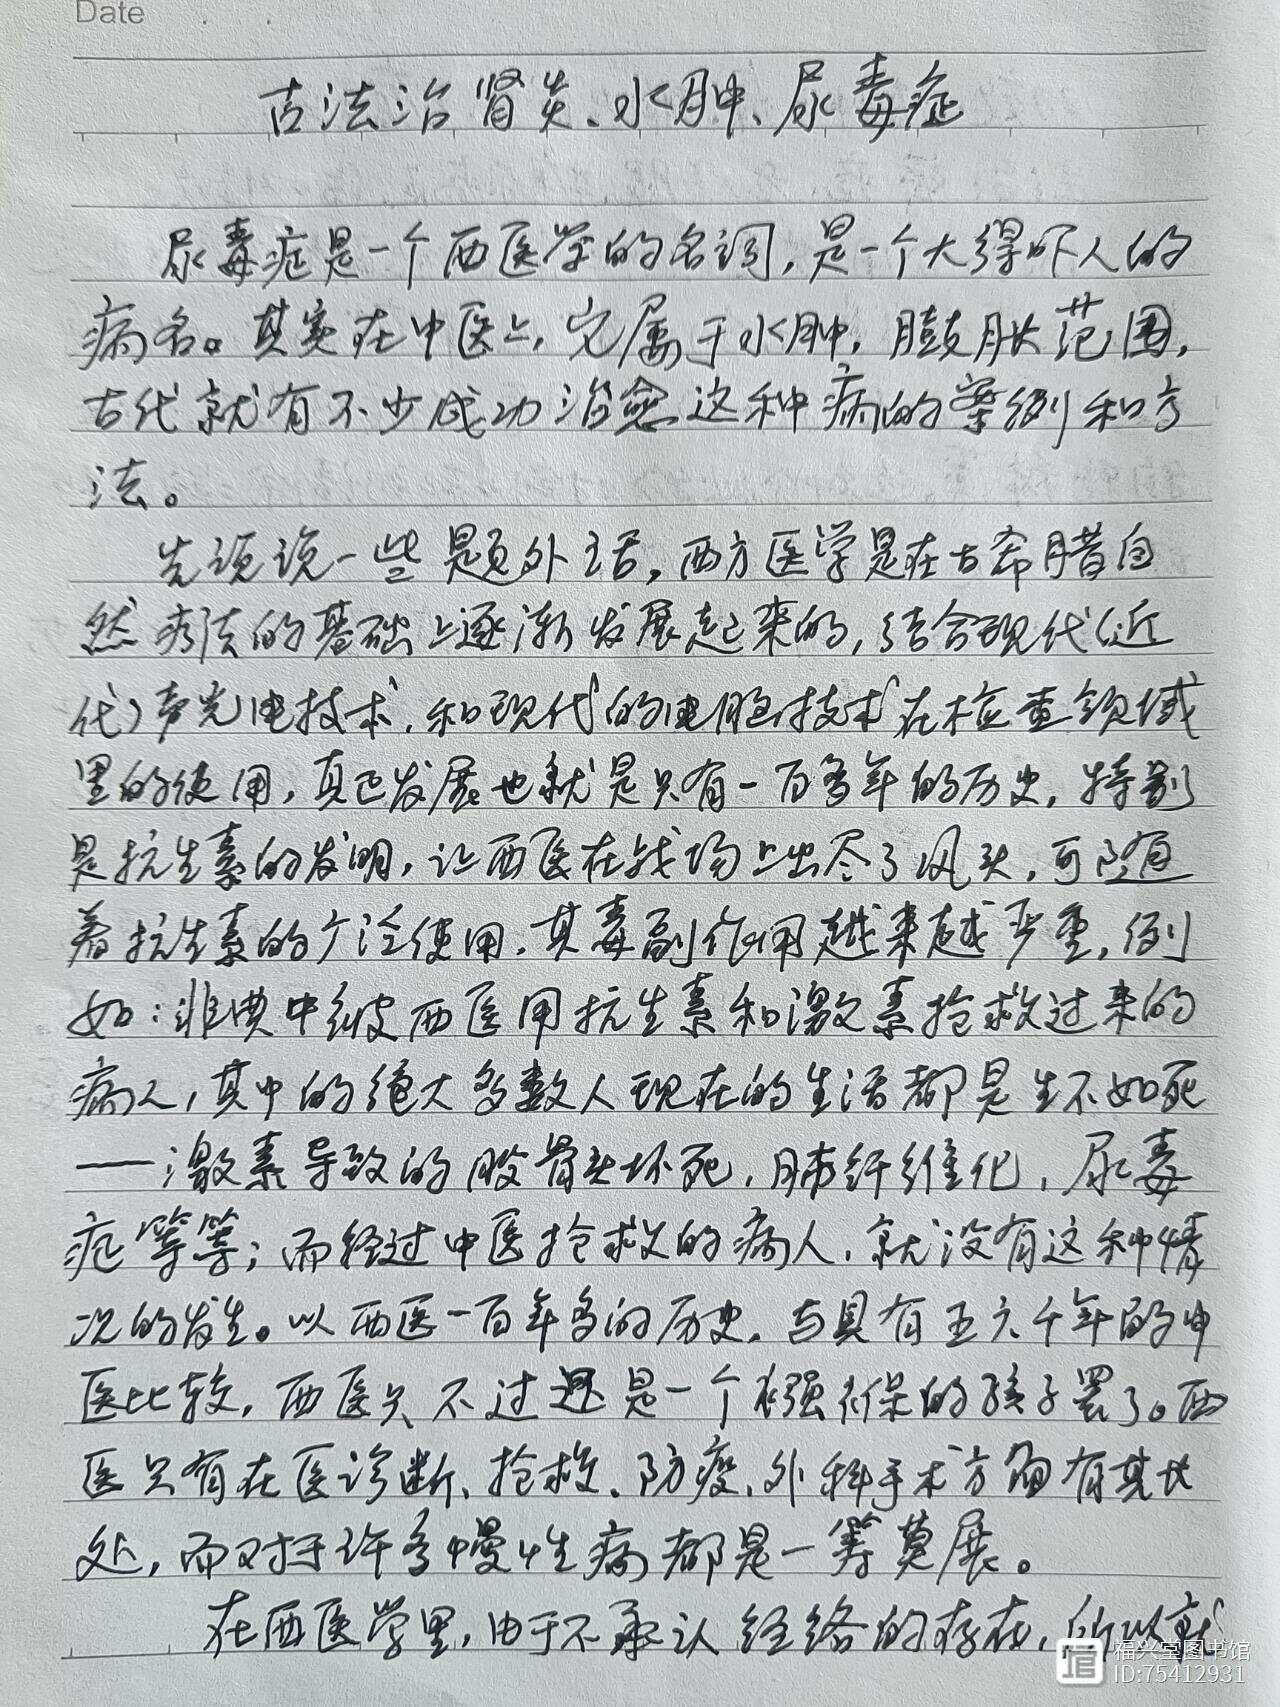 Date
古法治肾炎、水肿、尿毒症
尿毒症是一个西医学的名词，是一个大得吓人的
病名。其实在中医上，它属于水肿，膨胀范围，
古代就有不少成功治愈这种病的案例和方
法。
先须说一些题外话，西方医学是在古希腊自
然疗法的基础上逐渐发展起来的，结合现代（近
代）声光电技术，和现代的电脑技术在检查领域
里的使用，真正发展也就是只有一百多年的历史，特别
是抗生素的发明，让西医在战场上出尽了风头，可随
着抗生素的广泛使用，其毒副作用越来越严重，例
如：非典中被西医用抗生素和激素抢救过来的
病人，其中的绝大多数人现在的生活都是生不如死
——激素导致的股骨头坏死，肺纤维化，尿毒
症等等；而经过中医抢救的病人，就没有这种情
况的发生。以西医一百年多的历史，与具有五六千年的中
医比较，西医只不过还是一个襁褓的孩子罢了。西
医只有在医诊断、抢救、防疫、外科手术方面有其长
处，而对于许多慢性病都是一筹莫展。
在西医学里，由于不承认经络的存在，所以就
福兴堂图书馆
ID:75412931